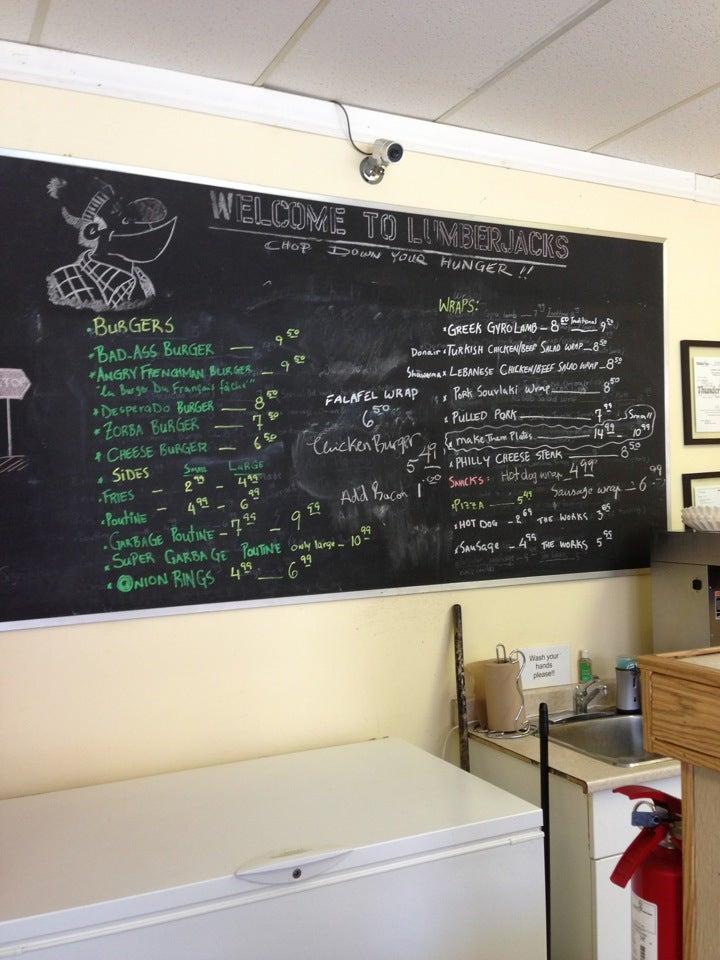 WELCOME TO LUMBERJACKS
CHOP DOWN YOUR HUNGER!!
BURGERS
BAD-ASS BURGER — 9 50
ANGRY FRENCHMAN BURGER — 9 50
"Le Burger Du Français fâché"
DESPERADO BURGER — 8 50
ZORBA BURGER — 7 50
CHEESE BURGER — 6 50
SIDES Small LARGE
FRIES - 2 99 - 4 99
POUTINE - 4 99 - 6 99
GARBAGE POUTINE - 7 99 - 9 99
SUPER GARBAGE POUTINE only large - 10 99
ONION RINGS 4 99 — 6 99
FALAFEL WRAP
6 50
Chicken Burger
5 49
Add Bacon 1 00
WRAPS:
GREEK GYRO LAMB - 8 50 Traditional 9 50
Donair TURKISH CHICKEN/BEEF SALAD WRAP - 8 50
Shawarma LEBANESE CHICKEN/BEEF SALAD WRAP - 8 50
PORK SOUVLAKI WRAP 8 50
PULLED PORK 7 99
make Them Plates 14 99 Small 10 99
PHILLY CHEESE STEAK 8 50
SNACKS: Hot dog wrap - 4 99
Sausage wrap - 6 99
PIZZA 5 49
HOT DOG - 2 69 THE WORKS 3 65
SAUSAGE - 4 99 THE WORKS 5 95
Wash your
hands
please!!